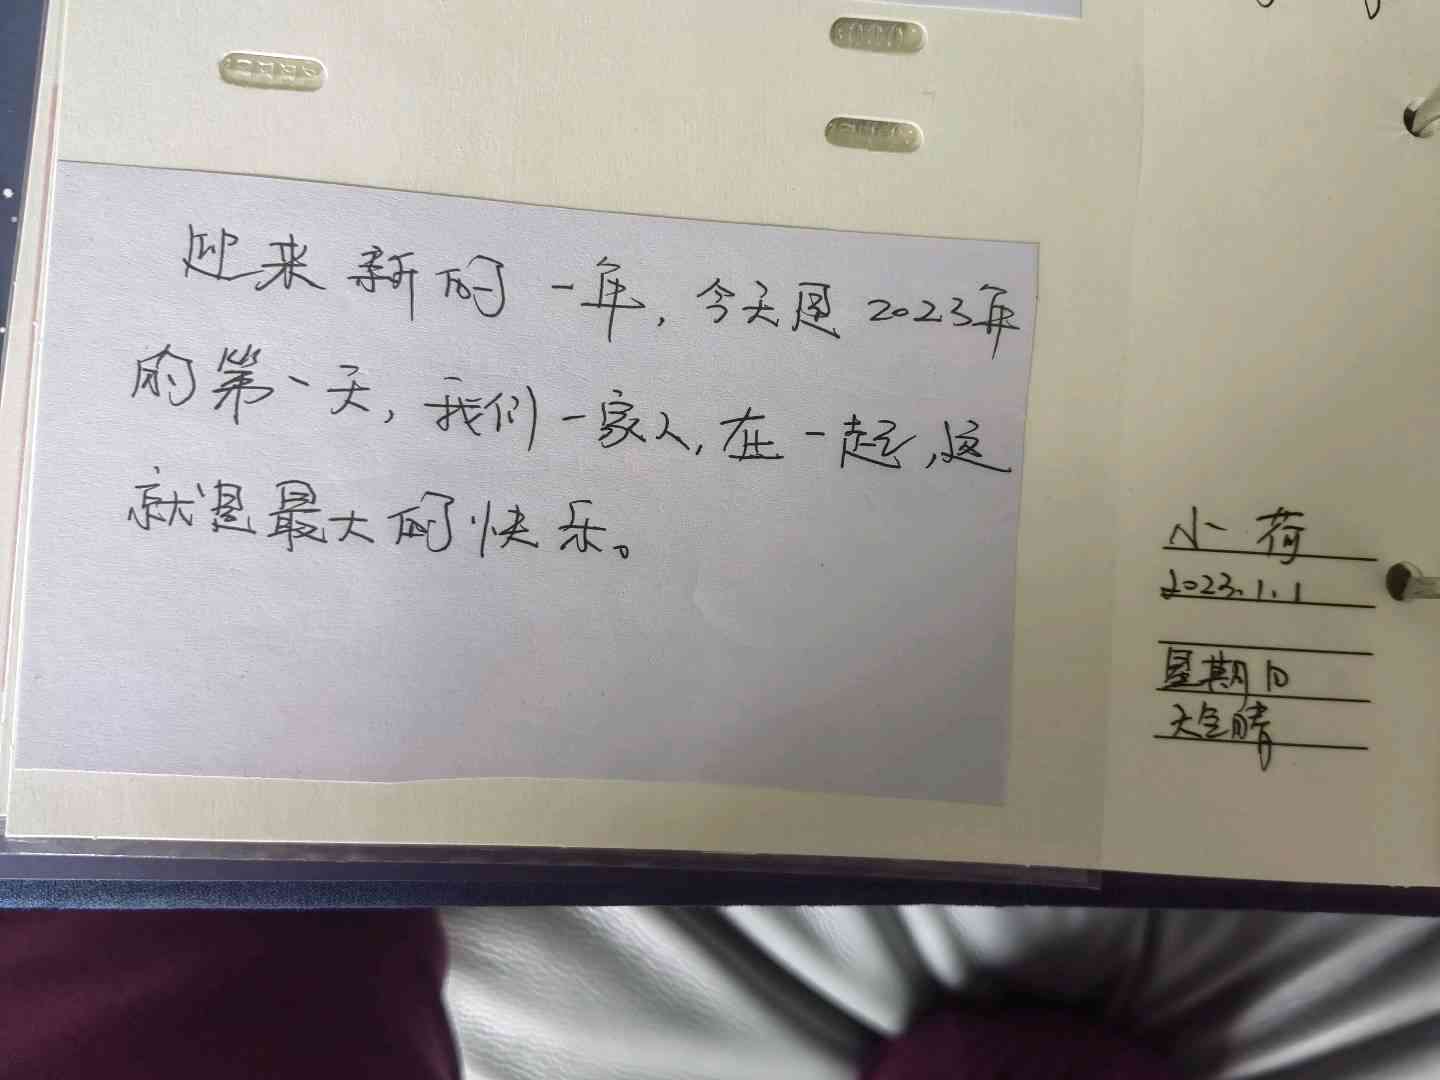 迎来新的一年，今天是2023年
的第一天，我们一家人，在一起，这
就是最大的快乐。
小荷
2023.1.1
星期日
天空晴